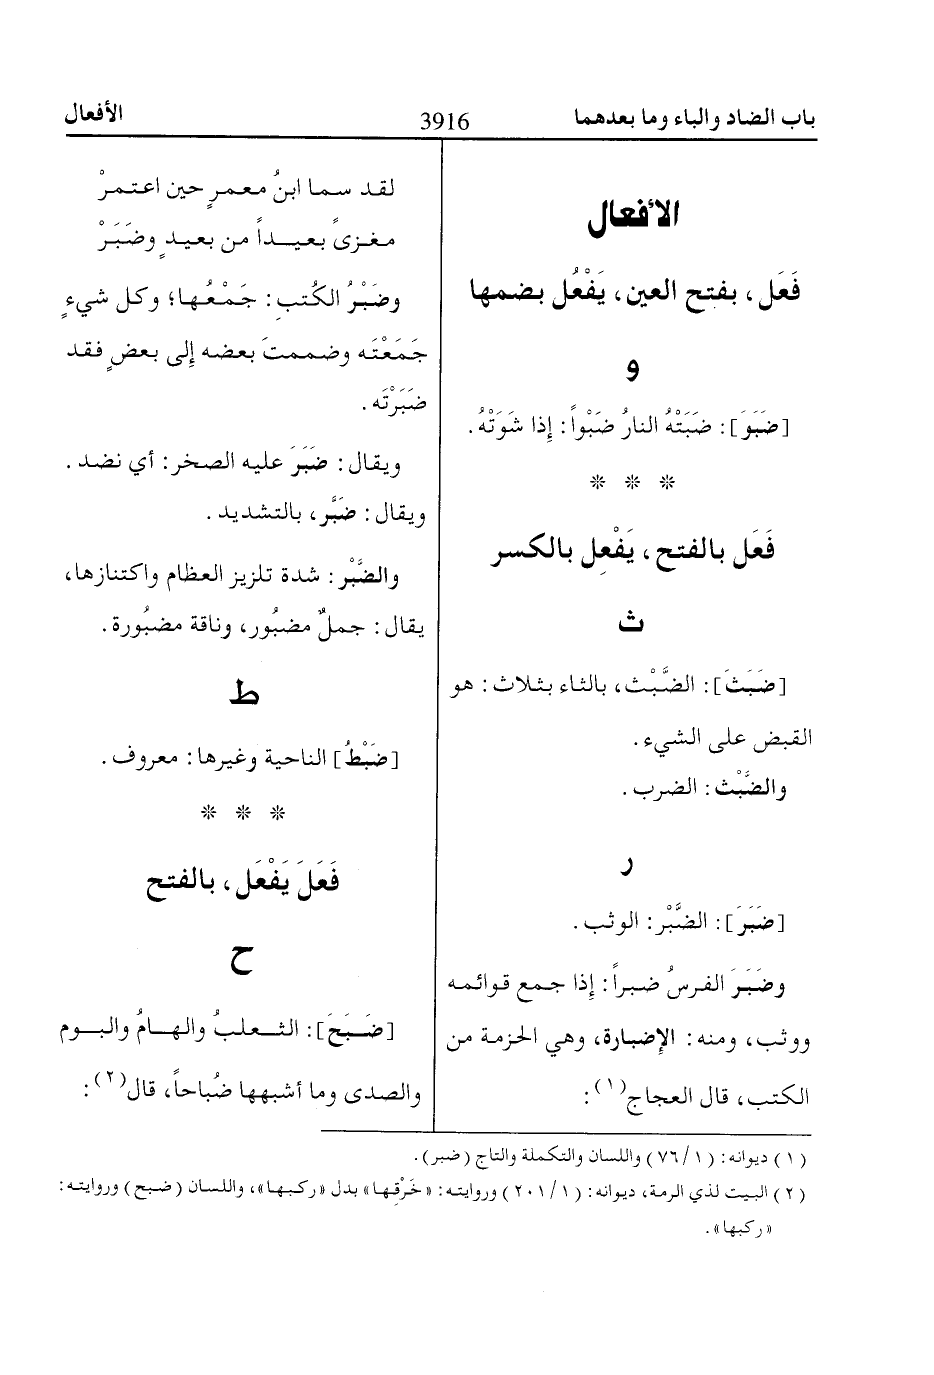 باب الضاد والباء وما بعدهما
3916
الأفعال
الأفعال
فَعَل، بفتح العين، يَفْعُل بضمها
و
[ضَبَوَ]: ضَبَتْهُ النارُ ضَبْواً: إِذا شَوَتْهُ.
* * *
فَعَل بالفتح، يَفْعِل بالكسر
ث
[ضَبَثَ]: الضَّبْث، بالثاء بثلاث: هو
القبض على الشيء.
والضَّبْث: الضرب.
ر
[ضَبَرَ]: الضَّبْر: الوثب.
وضَبَرَ الفرسُ ضبراً: إِذا جمع قوائمه
ووثب، ومنه: الإِضبارة، وهي الحزمة من
الكتب، قال العجاج(١):
لقد سما ابنُ معمرٍ حين اعتمرْ
مغزىً بعيداً من بعيدٍ وضَبَرْ
وضَبْرُ الكُتب: جَمْعُها؛ وكل شيءٍ
جَمَعْتَه وضممتَ بعضه إِلى بعضٍ فقد
ضَبَرْتَه.
ويقال: ضَبَرَ عليه الصخر: أي نضد.
ويقال: ضَبَّر، بالتشديد.
والضَّبْر: شدة تلزيز العظام واكتنازها،
يقال: جملٌ مضبُور، وناقة مضبُورة.
ط
[ضَبْطُ] الناحية وغيرها: معروف.
* * *
فَعَلَ يَفْعَل، بالفتح
ح
[ضَبَحَ]: الثعلبُ والهامُ والبوم
والصدى وما أشبهها ضُباحاً، قال(٢):
(١) ديوانه: (٧٦/١) واللسان والتكملة والتاج (ضبر).
(٢) البيت لذي الرمة، ديوانه: (٢٠١/١) وروايته: «خَرْقِها» بدل «ركبها»، واللسان (ضبح) وروايته:
«ركبها».